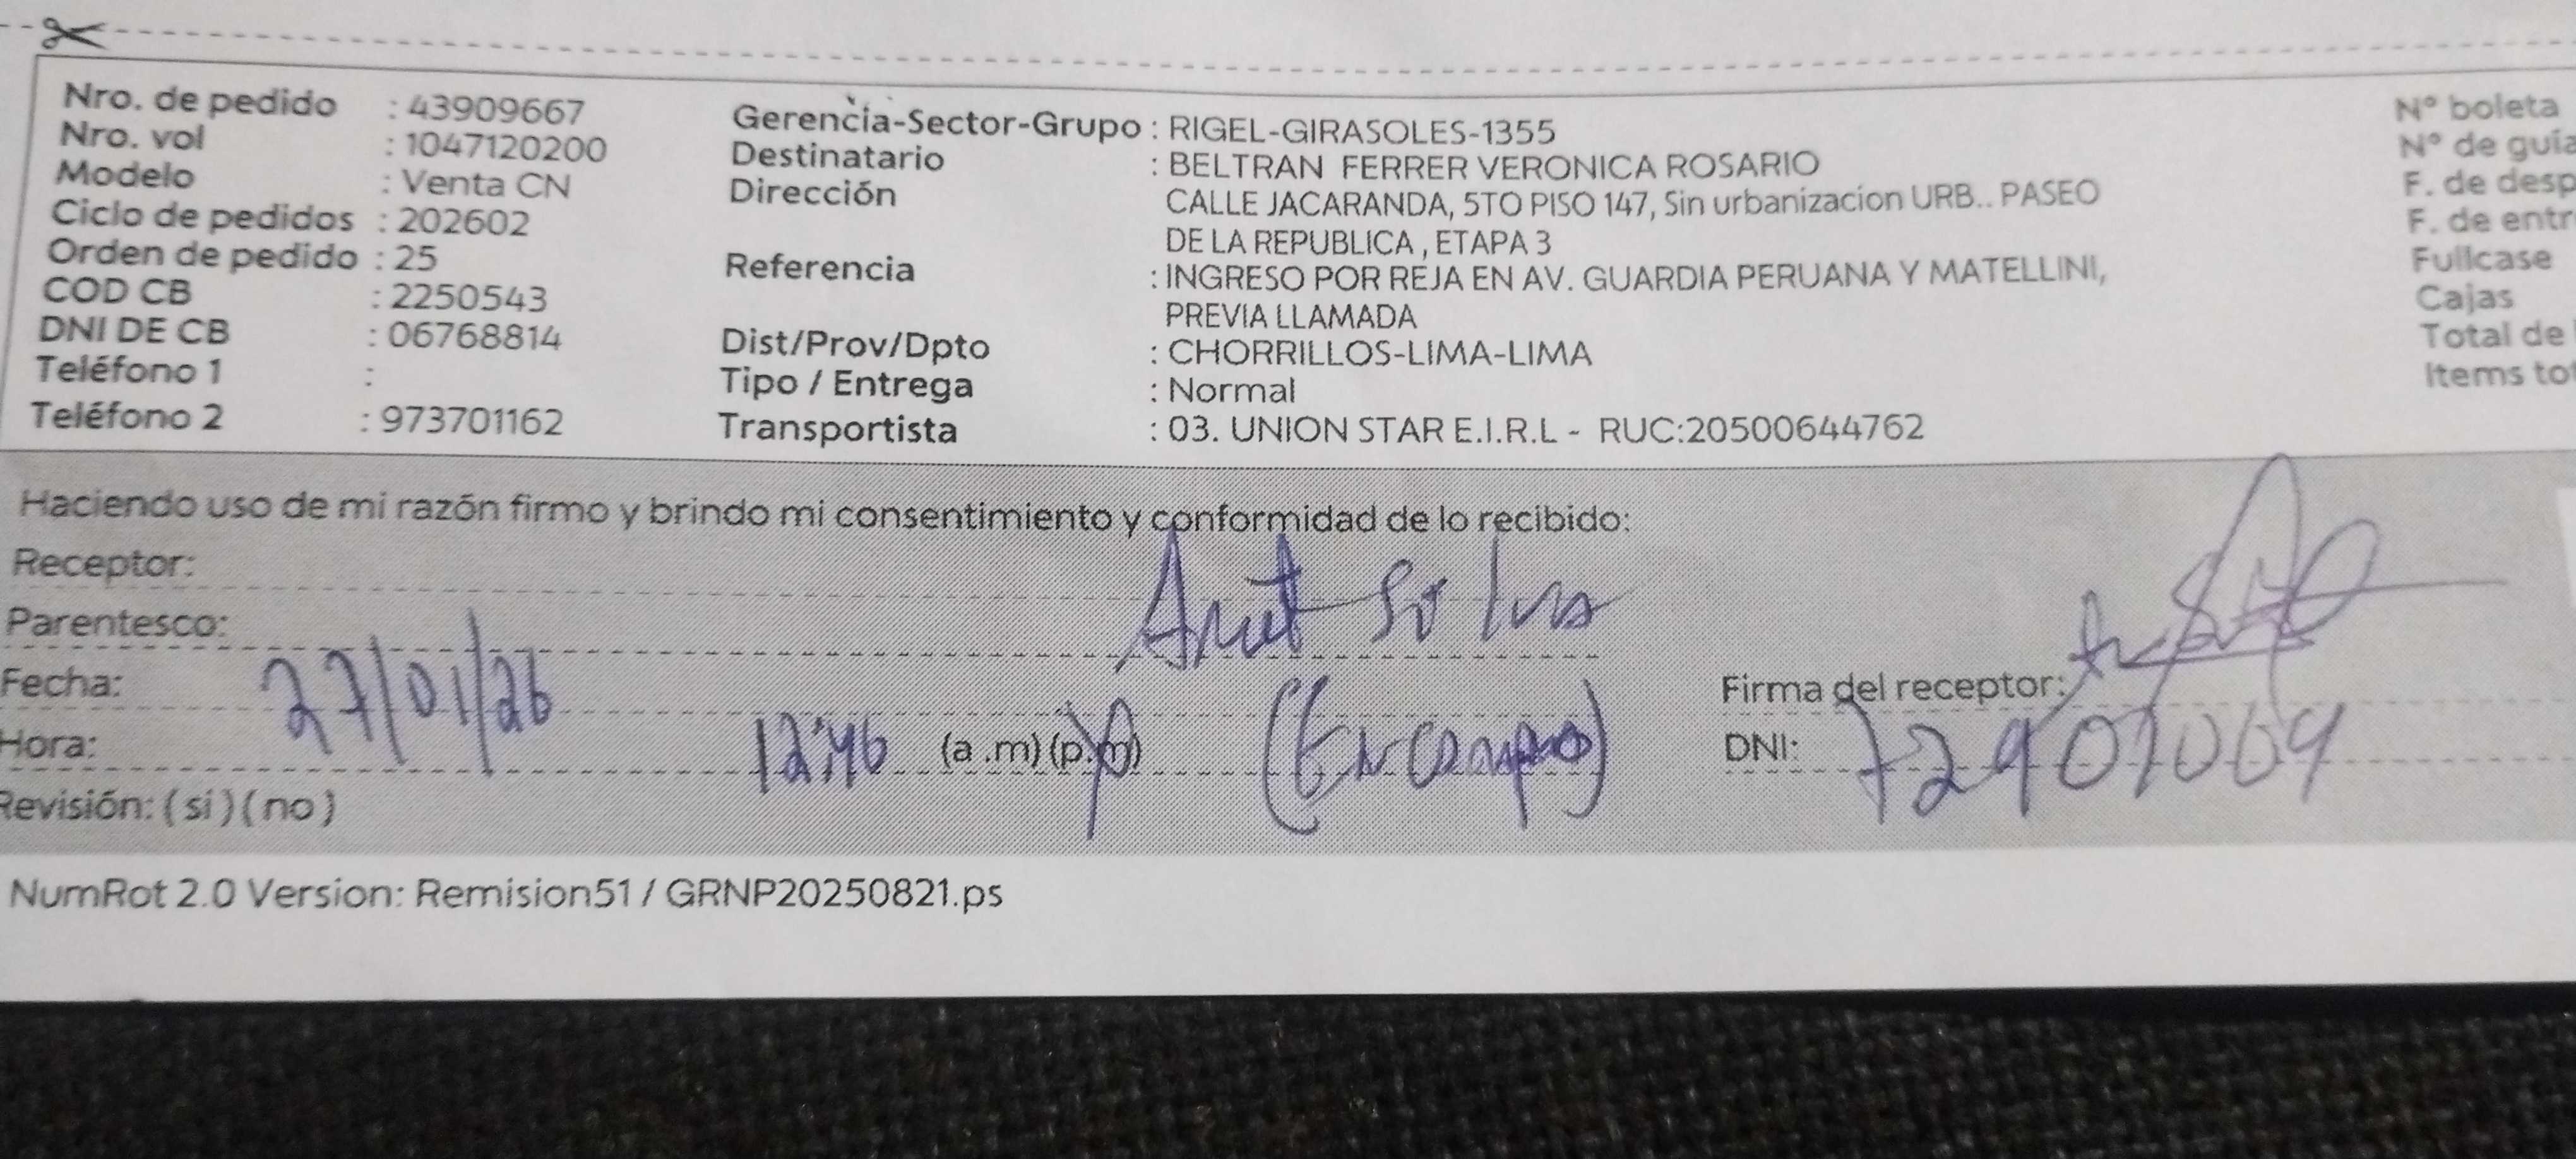 Nro. de pedido : 43909667
Nro. vol : 1047120200
Modelo : Venta CN
Ciclo de pedidos : 202602
Orden de pedido : 25
COD CB : 2250543
DNI DE CB : 06768814
Teléfono 1 :
Teléfono 2 : 973701162
Gerencia-Sector-Grupo : RIGEL-GIRASOLES-1355
Destinatario : BELTRAN FERRER VERONICA ROSARIO
Dirección CALLE JACARANDA, 5TO PISO 147, Sin urbanizacion URB.. PASEO
DE LA REPUBLICA , ETAPA 3
Referencia : INGRESO POR REJA EN AV. GUARDIA PERUANA Y MATELLINI,
PREVIA LLAMADA
Dist/Prov/Dpto : CHORRILLOS-LIMA-LIMA
Tipo / Entrega : Normal
Transportista : 03. UNION STAR E.I.R.L - RUC:20500644762
N° boleta
N° de guía
F. de desp
F. de entr
Fullcase
Cajas
Total de
Items tot
Haciendo uso de mi razón firmo y brindo mi consentimiento y conformidad de lo recibido:
Receptor:
Parentesco:
Fecha: 27/01/26
Hora: 12:46 (a .m) (p.m)
Revisión: ( si ) ( no )
Firma del receptor:
DNI: 72907064
NumRot 2.0 Version: Remision51 / GRNP20250821.ps